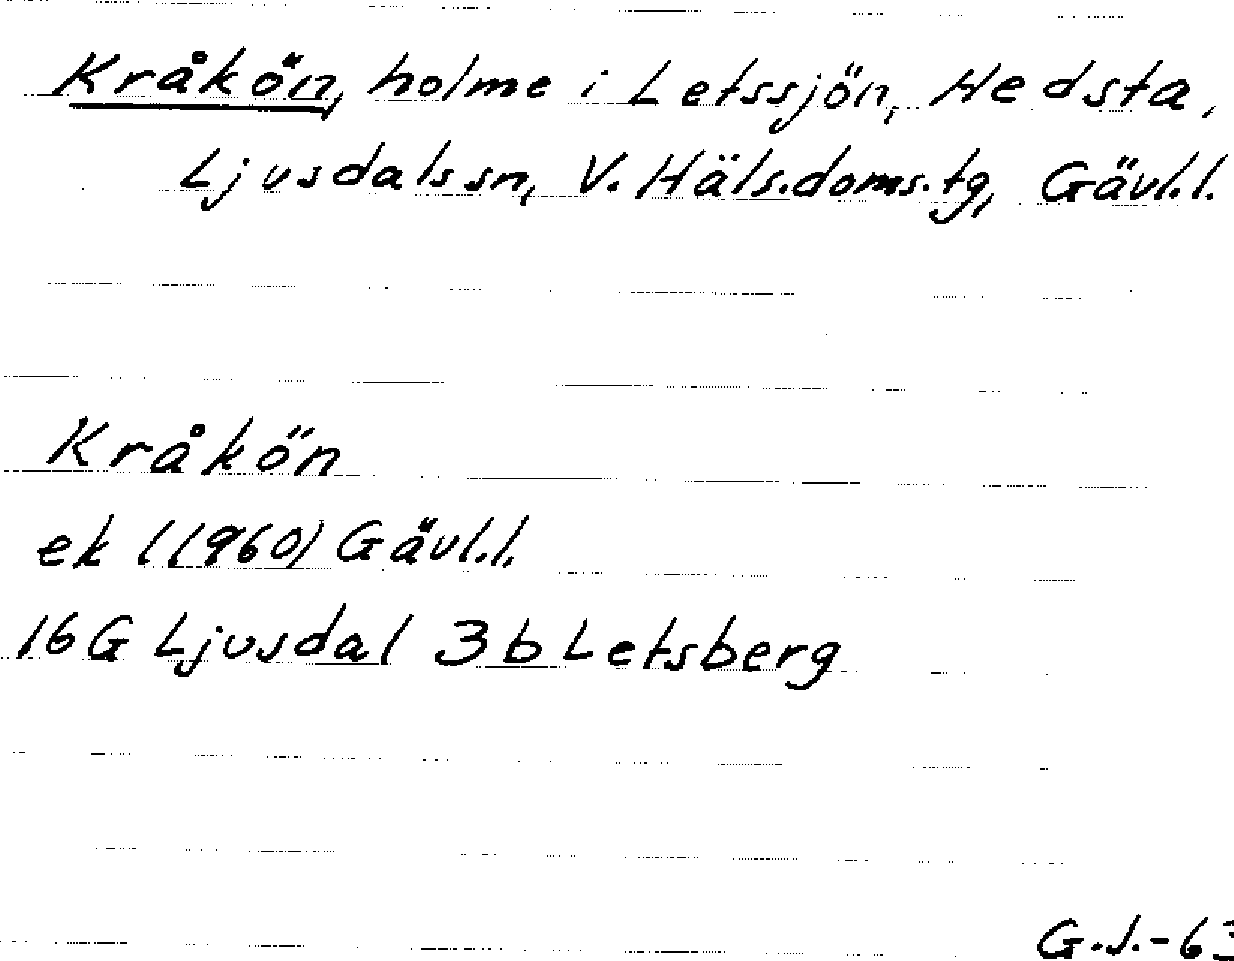 Kråkön, holme i Letssjön, Hedsta,
Ljusdals sn, V. Häls. doms. tg, Gävl. l.
Kråkön
ek (1960) Gävl. l.
16G Ljusdal 3b Letsberg
G.J.-63